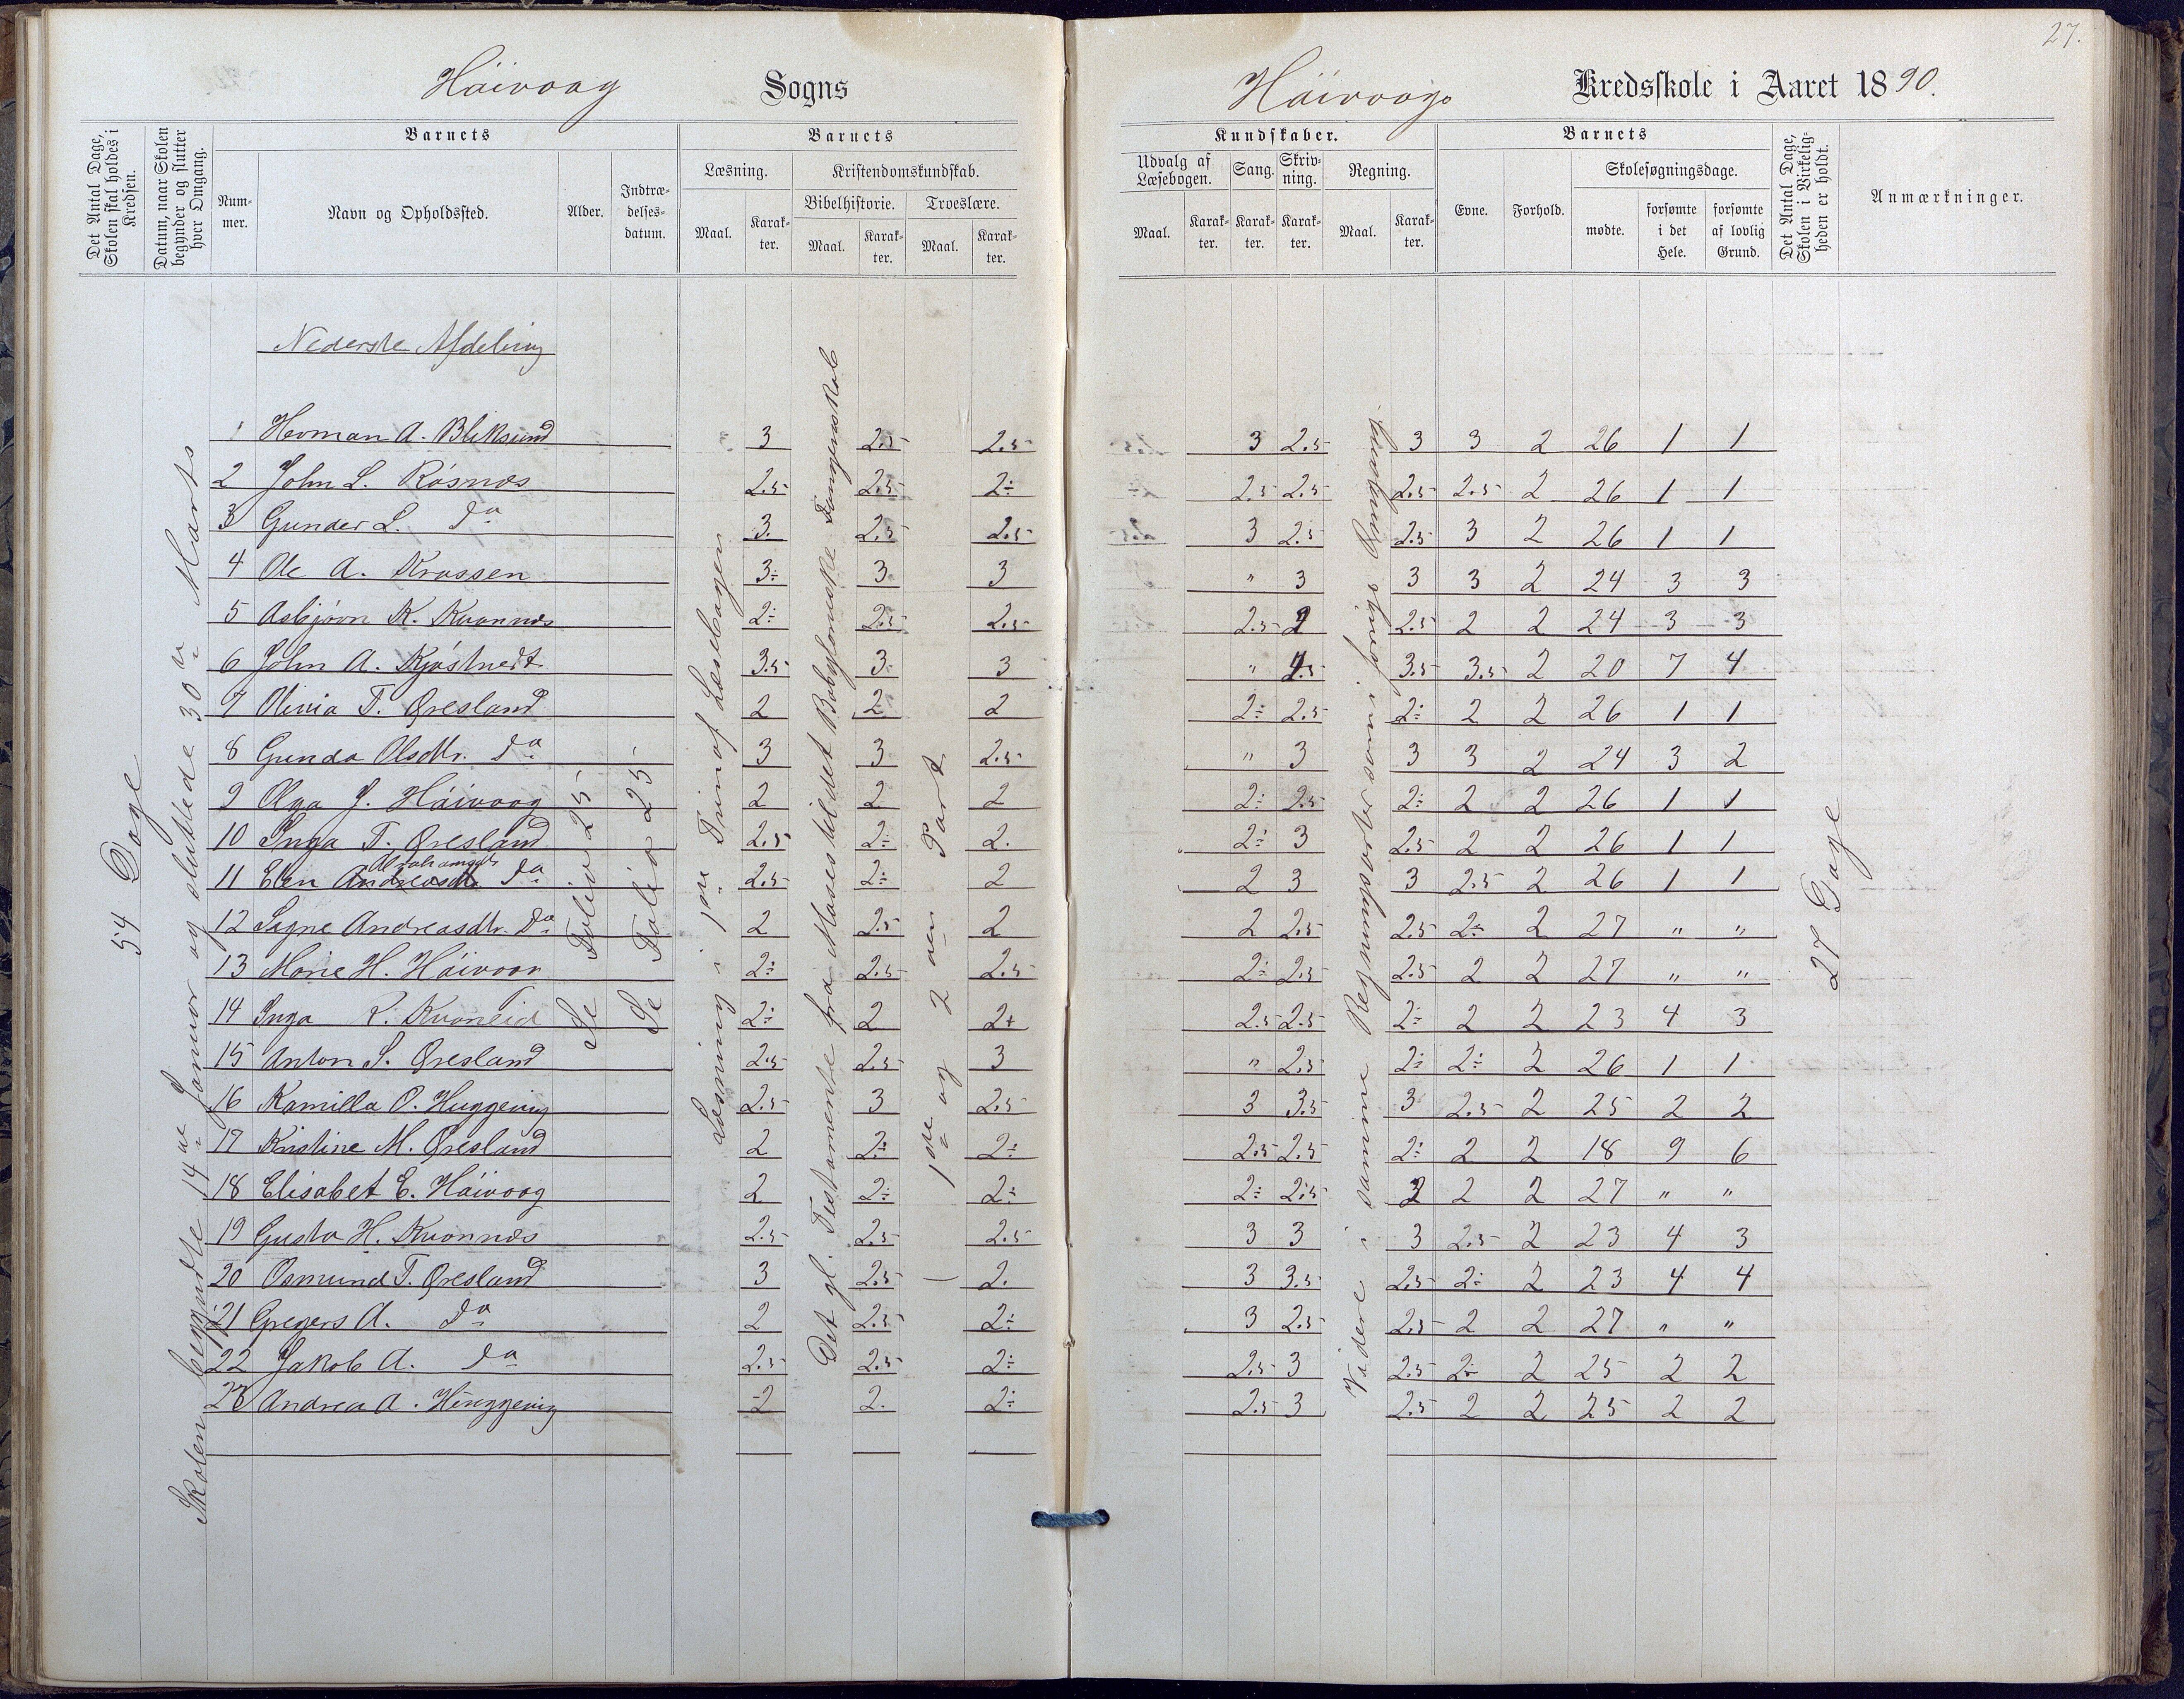 27.
Höivaag Sogns
Höivaags Kredsskole i Aaret 1890.
Det Antal Dage, Skolen skal holdes i Kredsen.
Datum, naar Skolen begynder og slutter hver Omgang.
Barnets
Num-mer.
Navn og Opholdssted.
Alder.
Indtræ-delses-datum.
Barnets
Læsning.
Maal.
Karak-ter.
Kristendomskundskab.
Bibelhistorie.
Maal.
Karak-ter.
Troeslære.
Maal.
Karak-ter.
Kundskaber.
Udvalg af Læsebogen.
Maal.
Karak-ter.
Sang.
Karak-ter.
Skriv-ning.
Karak-ter.
Regning.
Maal.
Karak-ter.
Barnets
Evne.
Forhold.
Skolesøgningsdage.
mødte.
forsømte i det Hele.
forsømte af lovlig Grund.
Det Antal Dage, Skolen i Virkelig-heden er holdt.
Anmærkninger.
54 Dage
Skolen begyndte 14de Januar og sluttede 30te Marts
Se Folio 25
Se Folio 25
Læsning i 1ste Trin af Læsebogen
Det gl. Testamente fra Moses til det Babyloniske Fangenskab
1ste og 2den Part
Videre i samme Regningsarter som i forrige
27 Dage
Nederste Afdeling
1 Herman A. Bliksund 3 2.5 2.5 3 2.5 3 3 2 26 1 1
2 John L. Kösnæs 2.5 2.5 2÷ 2.5 2.5 2.5 2.5 2 26 1 1
3 Gunder L. do 3. 2.5 2.5 3 2.5 2.5 3 2 26 1 1
4 Ole A. Krossen 3÷ 3 3 " 3 3 3 2 24 3 3
5 Asbjörn K. Kvannes 2÷ 2.5 2.5 2.5 2 2.5 2 2 24 3 3
6 John A. 3.5 3 3 " 3.5 3.5 2 20 7 4
7 Olivia T. Øresland 2 2 2 2÷ 2.5 2÷ 2 2 26 1 1
8 Gunda Olsdtr. do 3 3 2.5 " 3 3 3 2 24 3 2
9 Olga J. Höivaag 2 2 2 2÷ 2.5 2÷ 2 2 26 1 1
10 Inga T. Øresland 2.5 2÷ 2. 2÷ 3 2.5 2 2 26 1 1
11 Elen Andreasdtr. do 2.5 2÷ 2 2 3 3 2.5 2 26 1 1
12 Signe Andreasdtr. do 2 2.5 2 2 2.5 2.5 2÷ 2 27 " "
13 Marie H. Höivaag 2÷ 2.5 2.5 2÷ 2.5 2.5 2 2 27 " "
14 Inga K. Kvaneid 2÷ 2 2+ 2.5 2.5 2÷ 2 2 23 4 3
15 Anton S. Øresland 2.5 2.5 3 " 2.5 2÷ 2÷ 2 26 1 1
16 Kamilla O. Huggevig 2.5 3 2.5 3 3.5 3 2.5 2 25 2 2
17 Kristine M. Øresland 2 2÷ 2÷ 2.5 2.5 2÷ 2 2 18 9 6
18 Elisabet E. Höivaag 2 2÷ 2÷ 2÷ 2.5 2 2 2 27 " "
19 Gusta H. Kvannes 2.5 2.5 2.5 3 3 3 2.5 2 23 4 3
20 Osmund T. Øresland 3 2.5 2. 3 3.5 2.5 2÷ 2 23 4 4
21 Gregers A. do 2 2.5 2÷ 3 2.5 2.5 2 2 27 " "
22 Jakob A. do 2.5 2.5 2÷ 2.5 3 2.5 2÷ 2 25 2 2
23 Andrea A. Huggevig 2 2. 2÷ 2.5 3 2.5 2 2 25 2 2